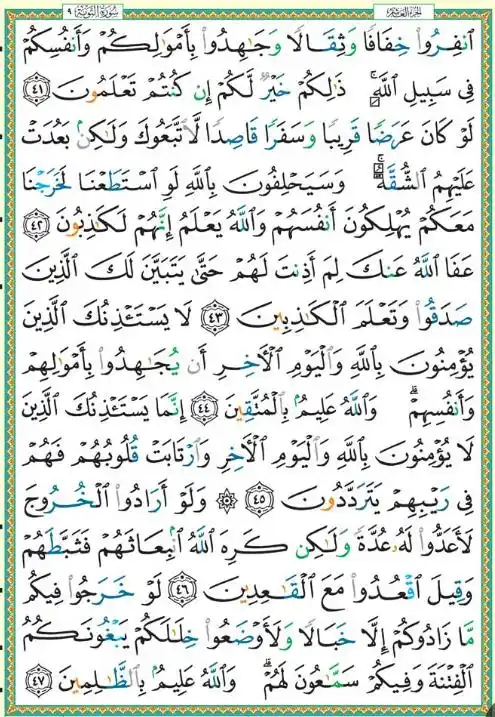 سُورَةُ التَّوْبَةِ ٩ الجُزْءُ العَاشِرُ
ٱنفِرُواْ خِفَافٗا وَثِقَالٗا وَجَٰهِدُواْ بِأَمۡوَٰلِكُمۡ وَأَنفُسِكُمۡ
فِي سَبِيلِ ٱللَّهِۚ ذَٰلِكُمۡ خَيۡرٞ لَّكُمۡ إِن كُنتُمۡ تَعۡلَمُونَ ٤١
لَوۡ كَانَ عَرَضٗا قَرِيبٗا وَسَفَرٗا قَاصِدٗا لَّٱتَّبَعُوكَ وَلَٰكِنۢ بَعُدَتۡ
عَلَيۡهِمُ ٱلشُّقَّةُۚ وَسَيَحۡلِفُونَ بِٱللَّهِ لَوِ ٱسۡتَطَعۡنَا لَخَرَجۡنَا
مَعَكُمۡ يُهۡلِكُونَ أَنفُسَهُمۡ وَٱللَّهُ يَعۡلَمُ إِنَّهُمۡ لَكَٰذِبُونَ ٤٢
عَفَا ٱللَّهُ عَنكَ لِمَ أَذِنتَ لَهُمۡ حَتَّىٰ يَتَبَيَّنَ لَكَ ٱلَّذِينَ
صَدَقُواْ وَتَعۡلَمَ ٱلۡكَٰذِبِينَ ٤٣ لَا يَسۡتَـٔۡذِنُكَ ٱلَّذِينَ
يُؤۡمِنُونَ بِٱللَّهِ وَٱلۡيَوۡمِ ٱلۡأٓخِرِ أَن يُجَٰهِدُواْ بِأَمۡوَٰلِهِمۡ
وَأَنفُسِهِمۡۗ وَٱللَّهُ عَلِيمُۢ بِٱلۡمُتَّقِينَ ٤٤ إِنَّمَا يَسۡتَـٔۡذِنُكَ ٱلَّذِينَ
لَا يُؤۡمِنُونَ بِٱللَّهِ وَٱلۡيَوۡمِ ٱلۡأٓخِرِ وَٱرۡتَابَتۡ قُلُوبُهُمۡ فَهُمۡ
فِي رَيۡبِهِمۡ يَتَرَدَّدُونَ ٤٥ ۞ وَلَوۡ أَرَادُواْ ٱلۡخُرُوجَ
لَأَعَدُّواْ لَهُۥ عُدَّةٗ وَلَٰكِن كَرِهَ ٱللَّهُ ٱنۢبِعَاثَهُمۡ فَثَبَّطَهُمۡ
وَقِيلَ ٱقۡعُدُواْ مَعَ ٱلۡقَٰعِدِينَ ٤٦ لَوۡ خَرَجُواْ فِيكُم
مَّا زَادُوكُمۡ إِلَّا خَبَالٗا وَلَأَوۡضَعُواْ خِلَٰلَكُمۡ يَبۡغُونَكُمُ
ٱلۡفِتۡنَةَ وَفِيكُمۡ سَمَّٰعُونَ لَهُمۡۗ وَٱللَّهُ عَلِيمُۢ بِٱلظَّٰلِمِينَ ٤٧